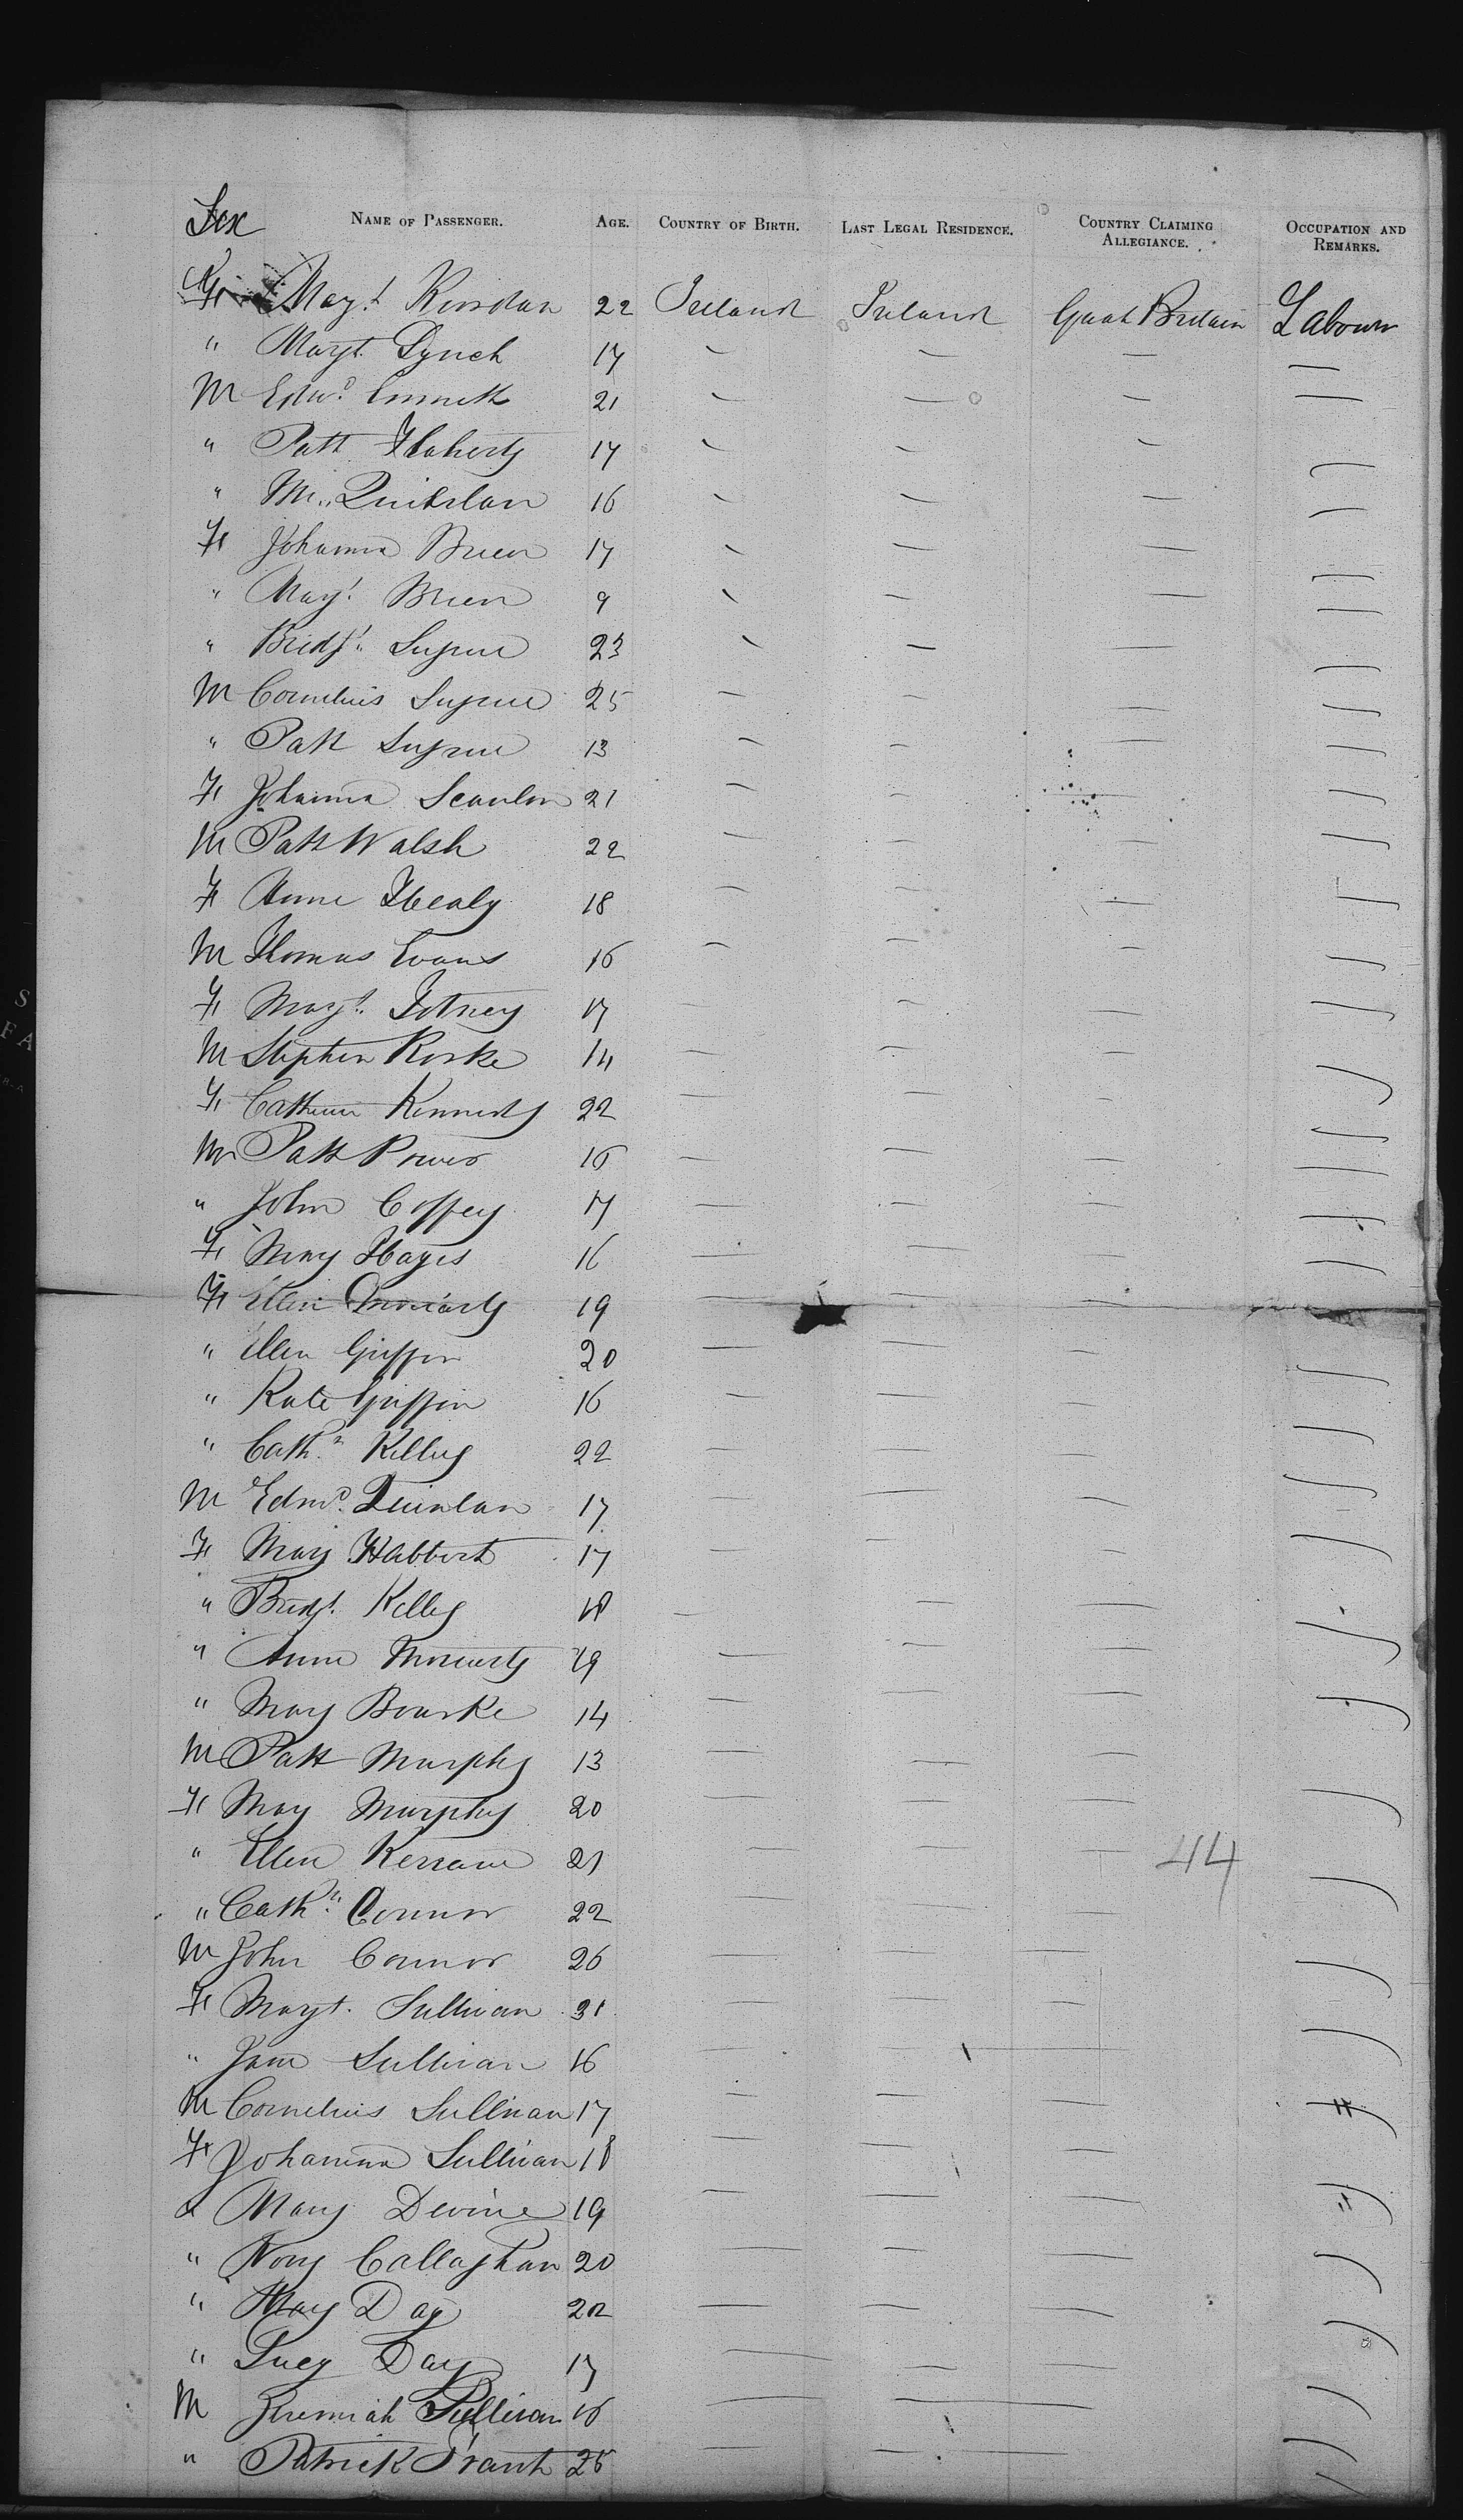 Sex NAME OF PASSENGER. AGE. COUNTRY OF BIRTH. LAST LEGAL RESIDENCE. COUNTRY CLAIMING ALLEGIANCE. OCCUPATION AND REMARKS.
F Mag.t Riordan 22 Ireland Ireland Great Britain Labour
" Magt. Lynch 17 — — — —
M Edw.d Emmett 21 — — — —
" Patt Flaherty 17 — — —
" M.. Quinlan 16 — — —
F Johanna Brien 17 — — —
" Mag.t Brien 9 — — —
" Bridg.t Sugrue 23 — — —
M Cornelius Sugrue 25 — — —
" Patt Sugrue 13 — — —
F Johanna Scanlon 21 — — —
M Patt Walsh 22 — — —
F Anne Healy 18 — — —
M Thomas Evans 16 — — —
F Mag.t 17 — — —
M Stephen Rorke 14 — — —
F Catherine Kennedy 22 — — —
M Patt Power 16 — — —
" John Coffey 17 — — —
F Mary Hayes 16 — — —
F Ellen Moriarty 19 — — —
" Ellen Griffin 20 — — —
" Kate Griffin 16 — — —
" Cath.n Kelley 22 — — —
M Edm.d Quinlan 17 — — —
F Mary Habbert 17 — — —
" Bridg.t Kelley 18 — — —
" Anne Moriarty 19 — — —
" Mary Bourke 14 — — —
M Patt Murphy 13 — — —
F Mary Murphy 20 — — —
" Ellen Kerrane 21 — — — 44
" Cath.n Connor 22 — — —
M John Connor 26 — — —
F Magt. Sullivan 31 — — —
" Jane Sullivan 16 — — —
M Cornelius Sullivan 17 — — — "
F Johanna Sullivan 18 — — —
" Mary Devine 19 — — — "
" Nory Callaghan 20 — — —
" Mary Day 22 — — —
" Lucy Day 17 — — —
M Jeremiah Sullivan 16 — — —
" Patrick Trant 25 — — —